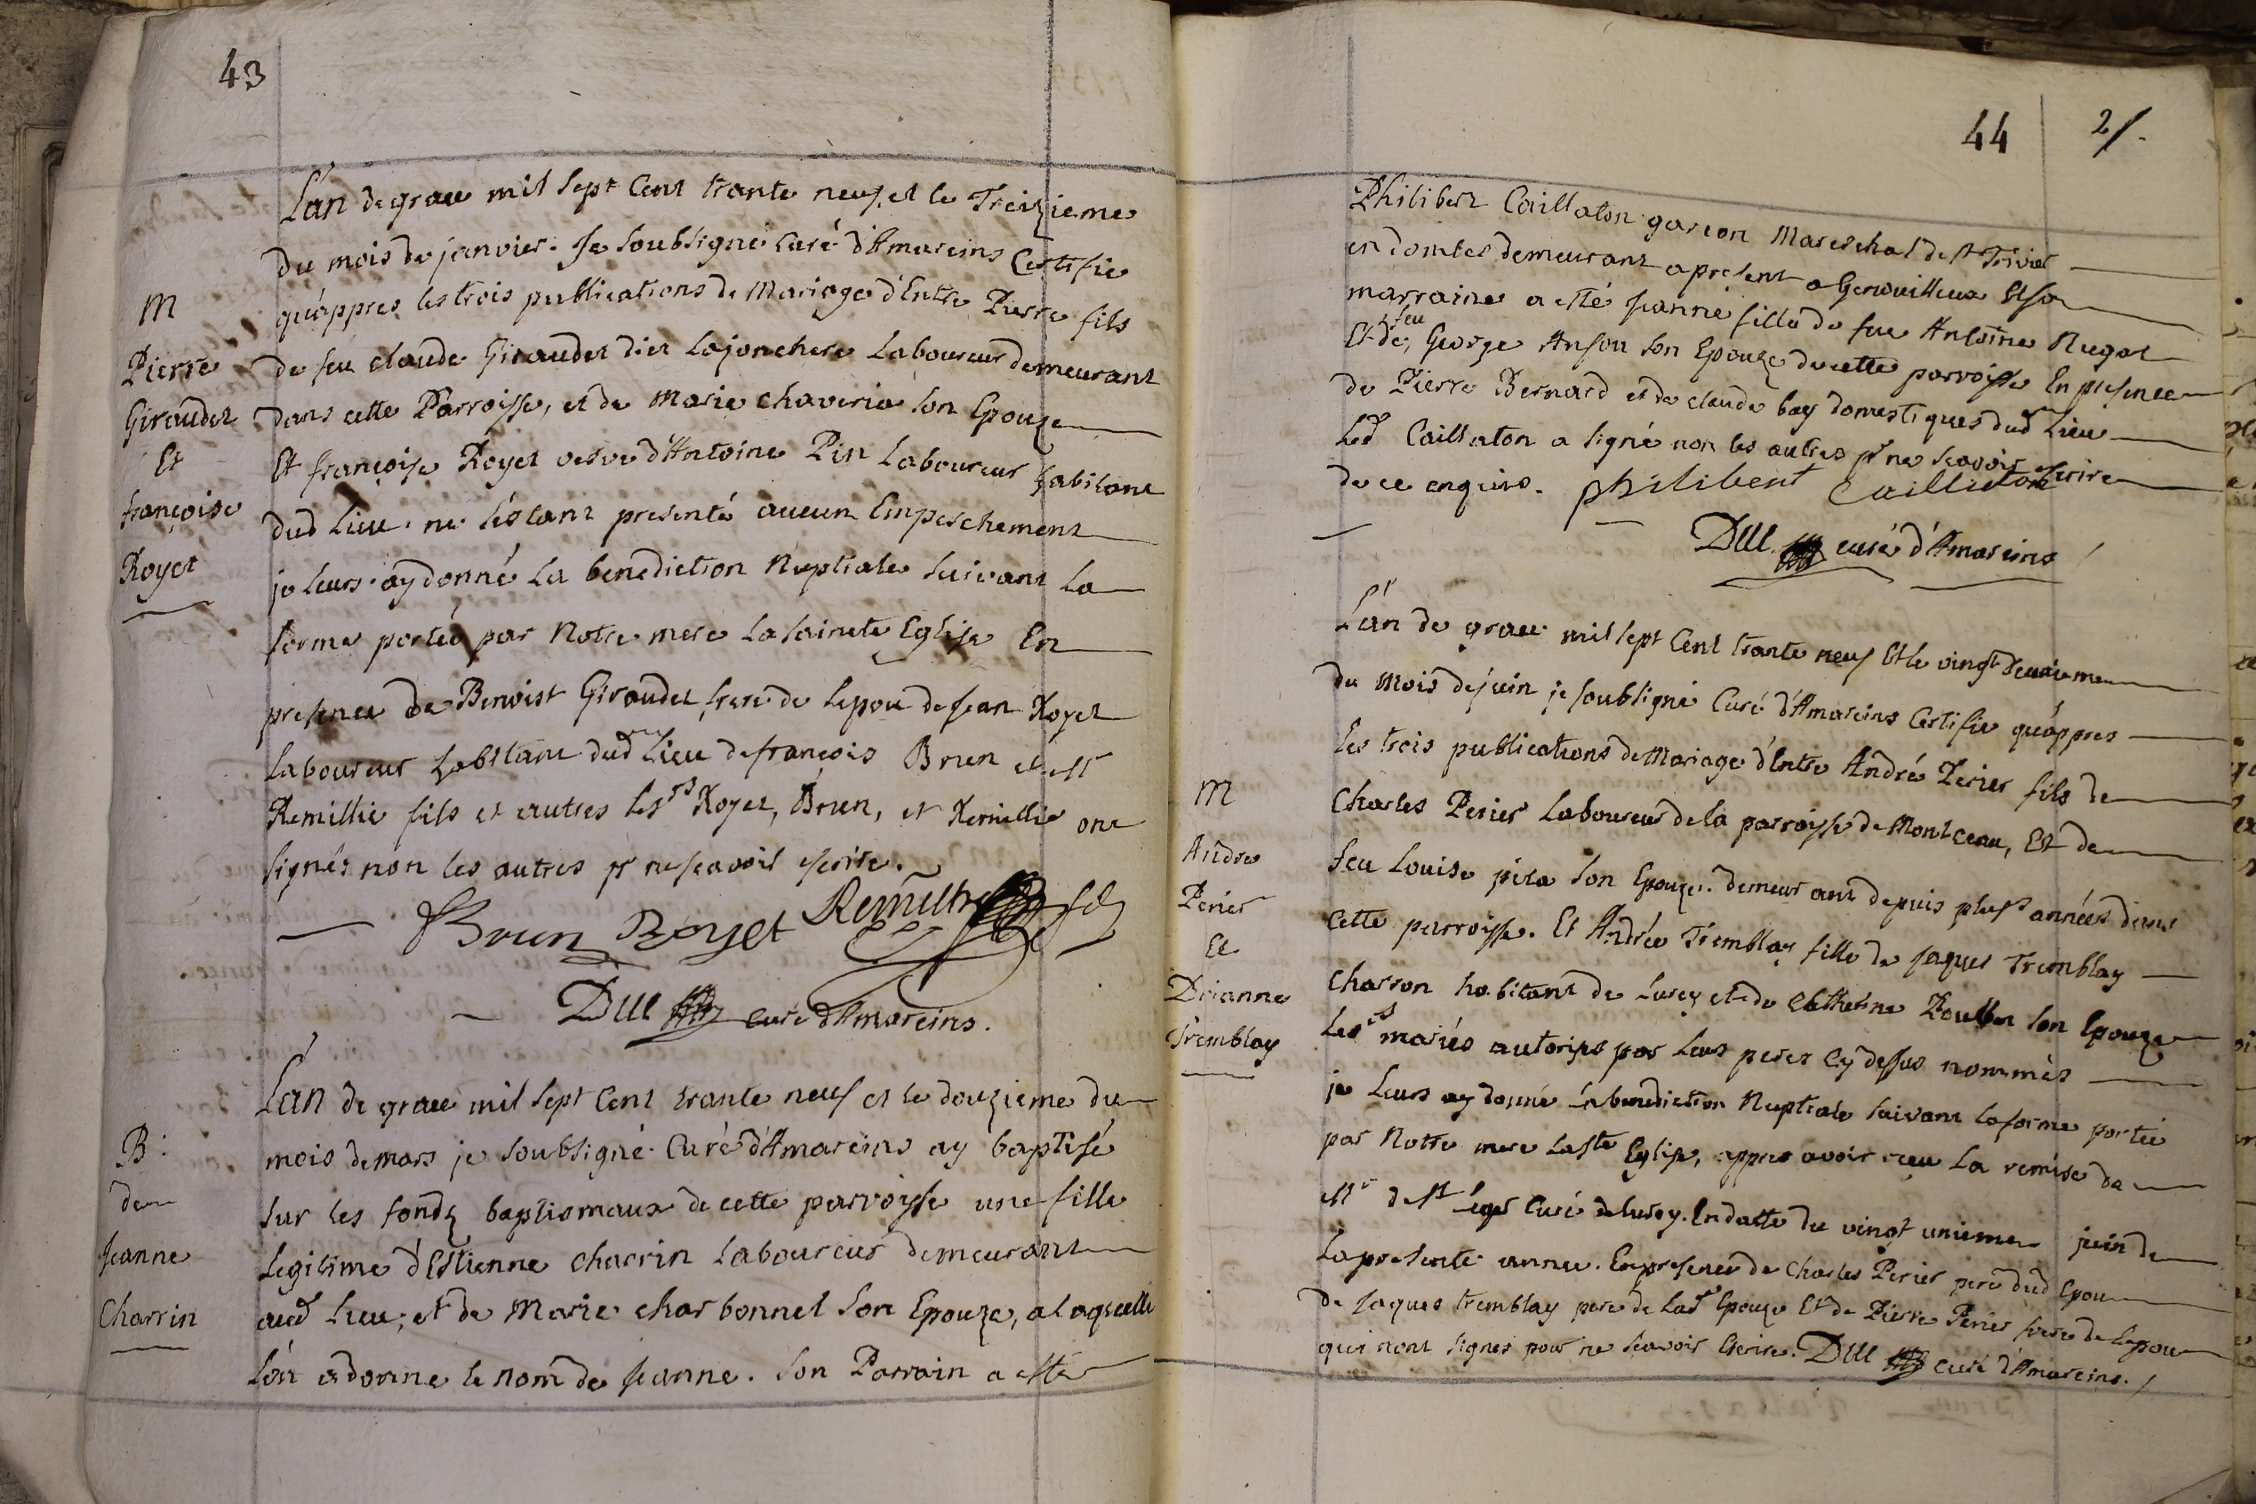 43
L'an de grace mil sept Cent trante neuf, et le Treizieme
du mois de janvier. Je soubsigné curé d'Amareins Certifie
qu'appres les trois publications de Mariage d'Entre Pierre fils
de feu claude Giraudet dict Lajonchere Laboureur demeurant
dans cette Parroisse, et de Marie chaveria son Epouze
Et françoise Royer vesve d'Antoine Pin Laboureur habitant
dud Lieu. ne s'estant presenté aucun Empeschement
je leurs ay donné La benediction Nuptiale suivant La
forme portée par Notre mere La saincte Eglise En
presence de Benoist Giraudet frere de Lepou de Jean Royer
Laboureur habitant dud Lieu de françois Brun et
Remillie fils et autres Les Royer, Brun, et Remillie ont
signés non les autres pr ne scavoir escrire.
Brun Royet Remillie fils
curé d'Amareins.
M
Pierre
Giraudet
Et
françoise
Royer
L'an de grace mil sept Cent trante neuf et le douzieme du
mois de mars je soubsigné Curé d'Amareins ay baptisé
sur les fondz baptismaux de cette parroisse une fille
Legitime d'Estienne charrin Laboureur demeurant
aud Lieu, et de Marie charbonnel son Epouze, a laquelle
l'on a donne le nom de Jeanne. son Parrain a esté
B:
de
Jeanne
Charrin
44 21.
Philibert Caillaton garcon Mareschal de st Trivier
en dombes demeurant a present a Genouilleux Et sa
marraine a esté Jeanne fille de feu Antoine Nugot
Et de feu George Ansou son Epouze de cette parroisse En presence
de Pierre Bernard et de claude bay domestiques dud Lieu
Led Caillaton a signé non les autres pr ne scavoir escrire
de ce enquis. philibert Caillietton
curé d'Amareins
L'an de grace mil sept Cent trante neuf Et le vingt deuxieme
du Mois de juin je soubsigné Curé d'Amareins Certifie qu'appres
les trois publications de Mariage d'Entre André Perier fils de
Charles Perier Laboureur de la parroisse de Montceau, Et de
feu Louise pita son Epouze. demeurant depuis plusrs années dans
cette parroisse. Et Andrée Tremblay fille de Jaques Tremblay
charron habitant de Lurcy et de Catherine Poullen son Epouze
Les mariés autorisés par Leurs peres Cy dessus nommés
je Leurs ay donné La benediction Nuptiale suivant la forme portée
par Notre mere La ste Eglise, appres avoir receu La remise de
Mr de st Leger Curé de Lurcy. En datte du vingt unieme juin de
La presente année. En presence de Charles Perier pere dud Epou
de Jaques tremblay pere de Lad Epouze Et de Pierre Perier frere de Lepou
qui nont signes pour ne scavoir Ecrire. curé d'Amareins.
M
Andre
Perier
Et
Drianne
Tremblay